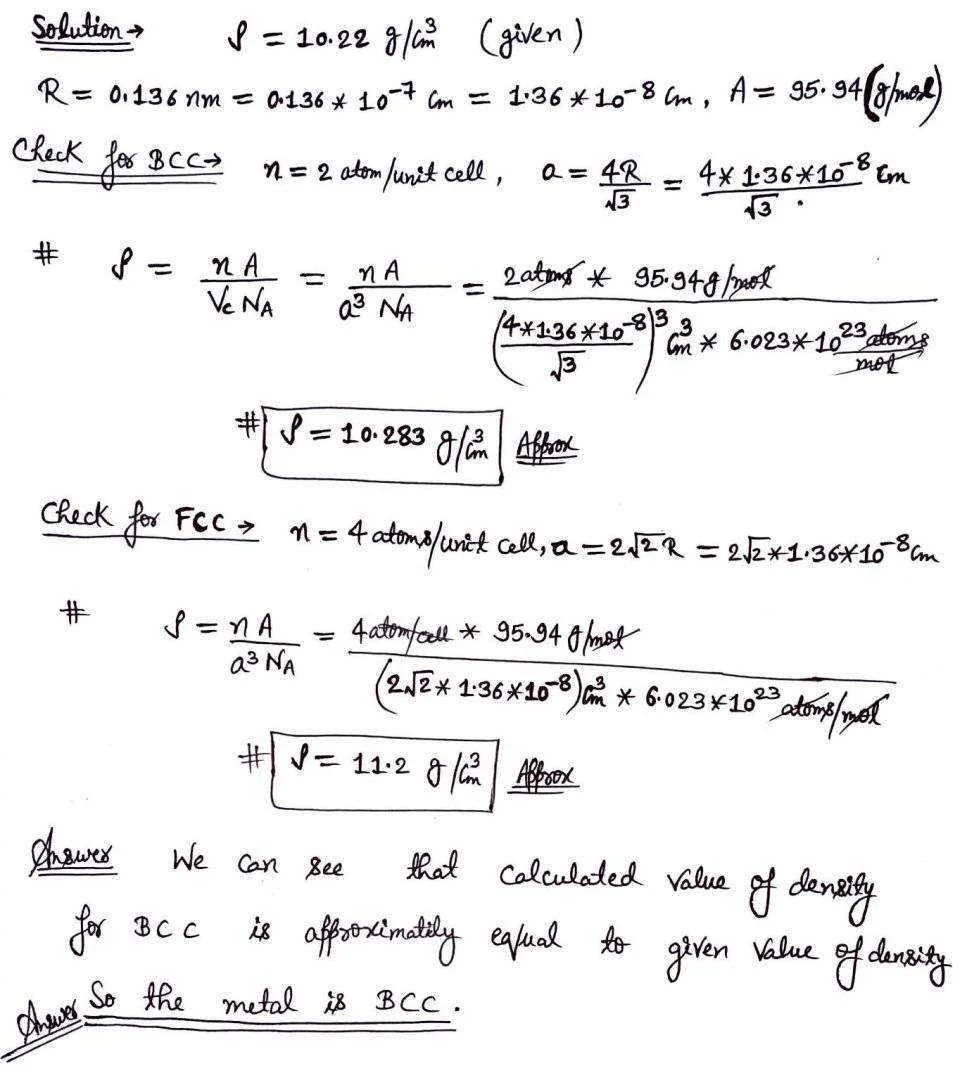 Solution → ρ = 10.22 g/cm³ (given)
R = 0.136 nm = 0.136 * 10⁻⁷ cm = 1.36 * 10⁻⁸ cm, A = 95.94 (g/mol)
Check for BCC → n = 2 atom/unit cell, a = 4R/√3 = 4 * 1.36 * 10⁻⁸ cm/√3 .
# ρ = nA/(Vc NA) = nA/(a³ NA) = 2 atoms * 95.94 g/mol / ((4*1.36*10⁻⁸/√3)³ cm³ * 6.023*10²³ atoms/mol)
# ρ = 10.283 g/cm³ Approx
Check for FCC → n = 4 atoms/unit cell, a = 2√2 R = 2√2 * 1.36*10⁻⁸ cm
# ρ = nA/(a³ NA) = 4 atom/cell * 95.94 g/mol / ((2√2 * 1.36*10⁻⁸) cm³ * 6.023*10²³ atoms/mol)
# ρ = 11.2 g/cm³ Approx
Answer We can see that calculated value of density
for BCC is approximatily equal to given value of density
Answer So the metal is BCC.